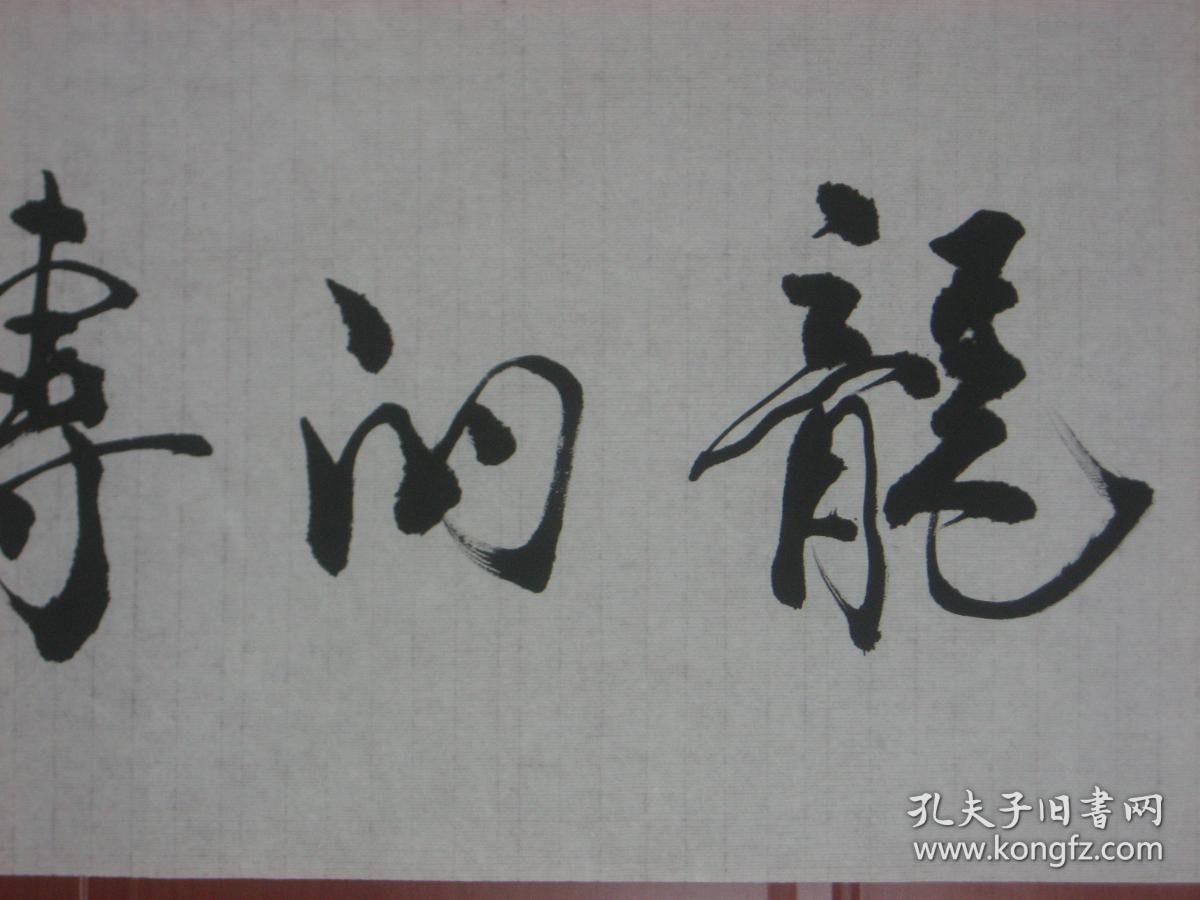 龍的傳
孔夫子旧書网
www.kongfz.com